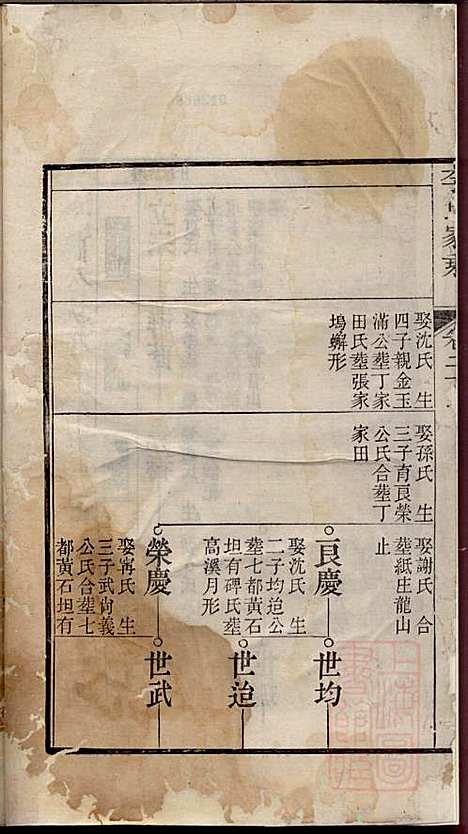 家乘
卷二
娶沈氏 生
四子親金玉
滿公塟丁家
田氏塟張家
塢蠏形
娶孫氏 生
三子育良榮
公氏合塟丁
家田
娶謝氏 合
塟紙庄龍山
止
良慶
世均
娶沈氏 生
二子均迨公
塟七都黃石
坦有碑氏塟
高溪月形
世迨
榮慶
世武
娶甯氏 生
三子武尚義
公氏合塟七
都黃石坦有